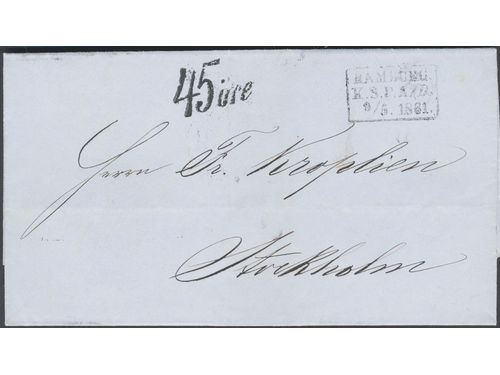 45 öre
HAMBURG.
K.S.P.A.(D.)
9/5. 1861.
Herrn Fr. Kroplien
Stockholm